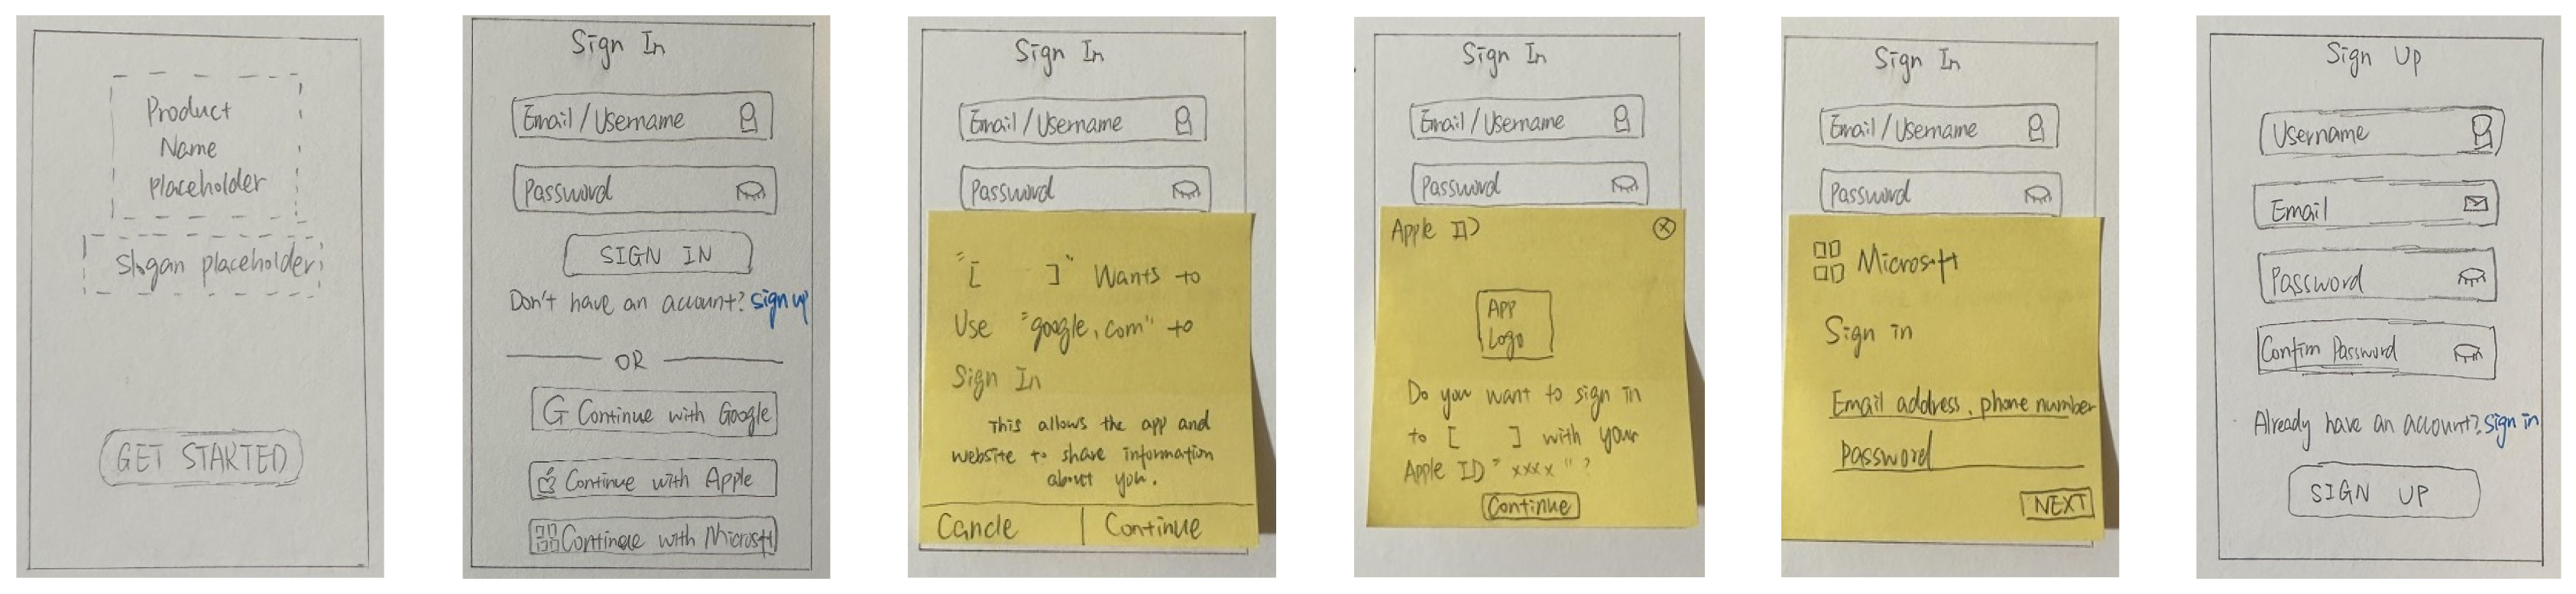 Product
Name
placeholder
Slogan placeholder
GET STARTED
Sign In
Email / Username
Password
SIGN IN
Don't have an account? sign up
OR
G Continue with Google
Continue with Apple
Continue with Microsft
Sign In
Email / Username
Password
"[ ]" Wants to
Use "google.com" to
Sign In
This allows the app and
website to share information
about you.
Cancle | Continue
Sign In
Email / Username
Password
Apple ID
APP
Logo
Do you want to sign in
to [ ] with your
Apple ID "xxxx"?
Continue
Sign In
Email / Username
Password
Microsoft
Sign in
Email address, phone number
Password
NEXT
Sign Up
Username
Email
Password
Confim Password
Already have an account? sign in
SIGN UP